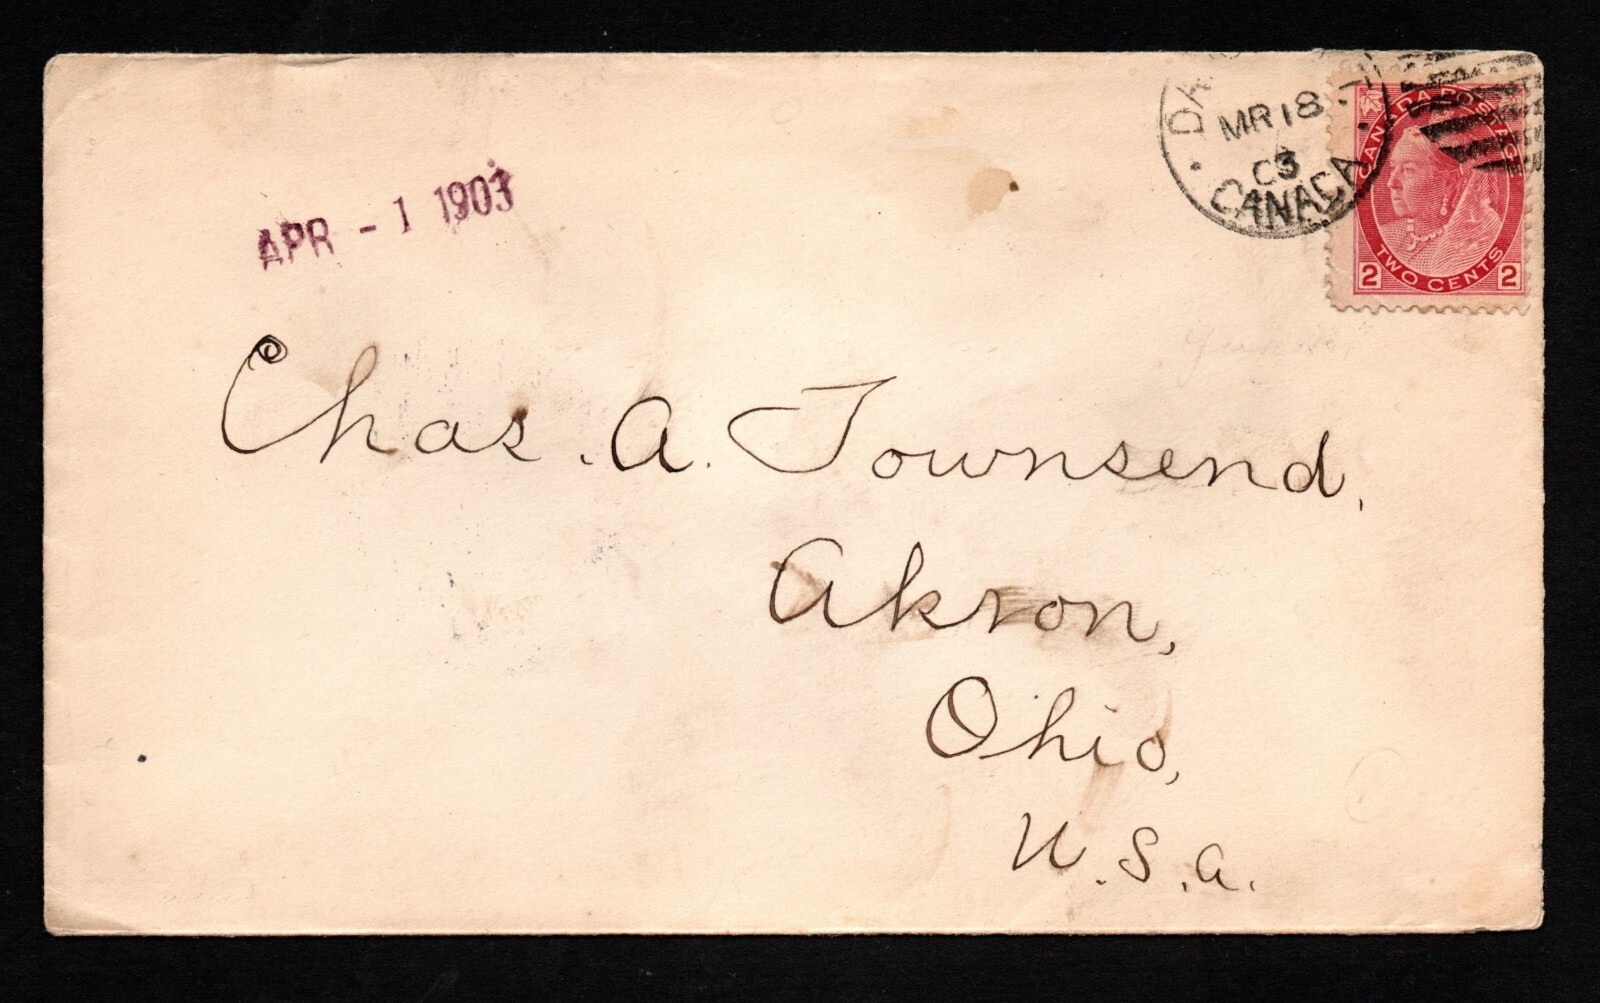 MR 18
03
CANADA
CANADA POSTAGE
TWO CENTS
2 2
APR - 1 1903
Chas. A. Townsend,
Akron,
Ohio,
U.S.A.